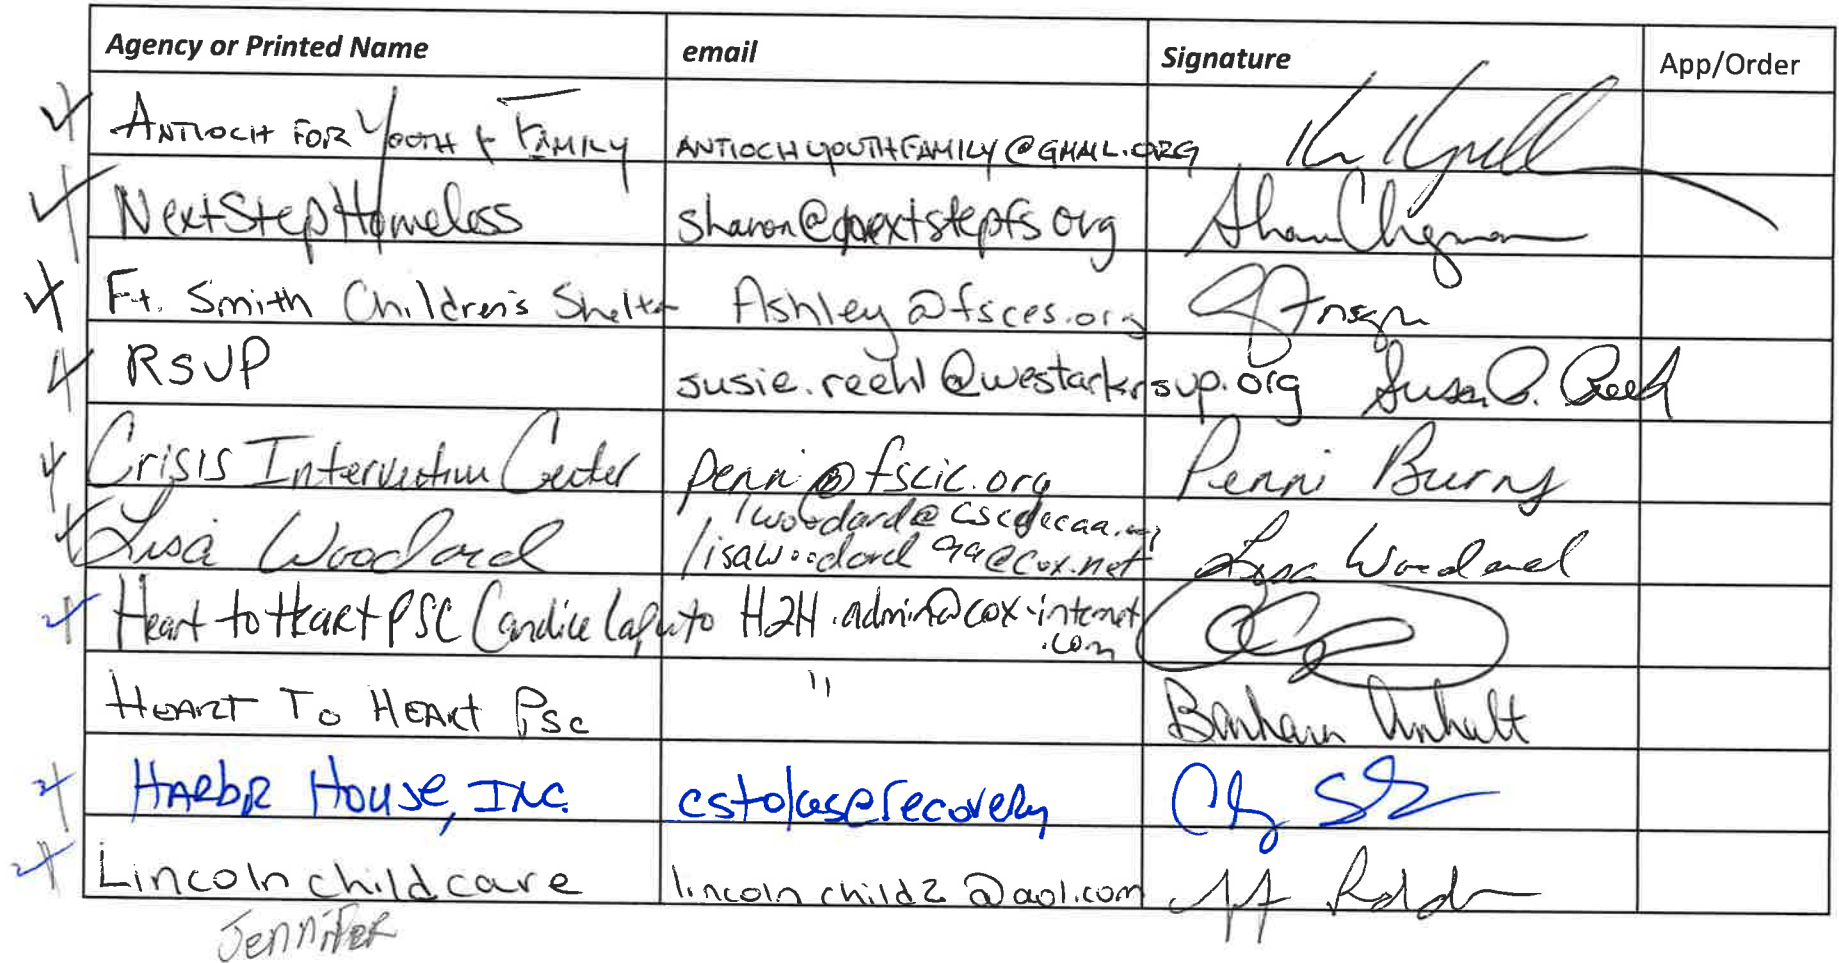 Agency or Printed Name email Signature App/Order
ANTIOCH FOR YOUTH & FAMILY ANTIOCHYOUTHFAMILY@GMAIL.ORG
NextStepHomeless sharon@nextstepfs.org Sharon Chapman
Ft. Smith Children's Shelter Ashley@fsces.org
RSVP susie.reehl@westarkrsup.org Susan B. Reehl
Crisis Intervention Center penni@fscic.org Penni Burns
lwoodard@cscdccaa.org
Lisa Woodard lisawoodard99@cox.net Lisa Woodard
Heart to Heart PSC Candice Caputo H2H.admin@cox-internet
.com
HEART TO HEART PSC " Barbara Anhalt
HARBOR HOUSE, INC.
Lincoln childcare lincolnchild2@aol.com
JENNIFER